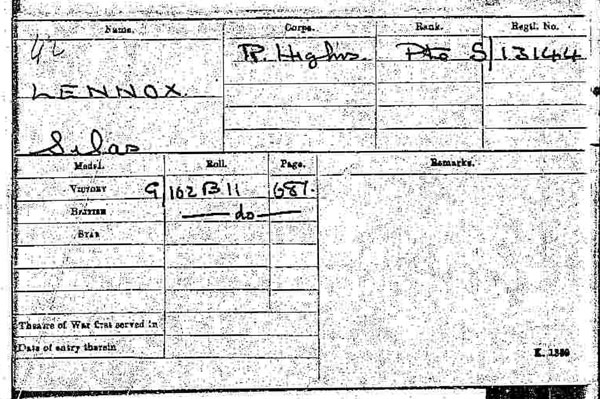 Name. Corps. Rank. Regtl. No.
42 R. Highrs. Pte S/13144
LENNOX.
Silas
Medal. Roll. Page. Remarks.
VICTORY G/102 B 11 687.
BRITISH —— do ——
STAR
Theatre of War first served in
Date of entry therein
K. 1380